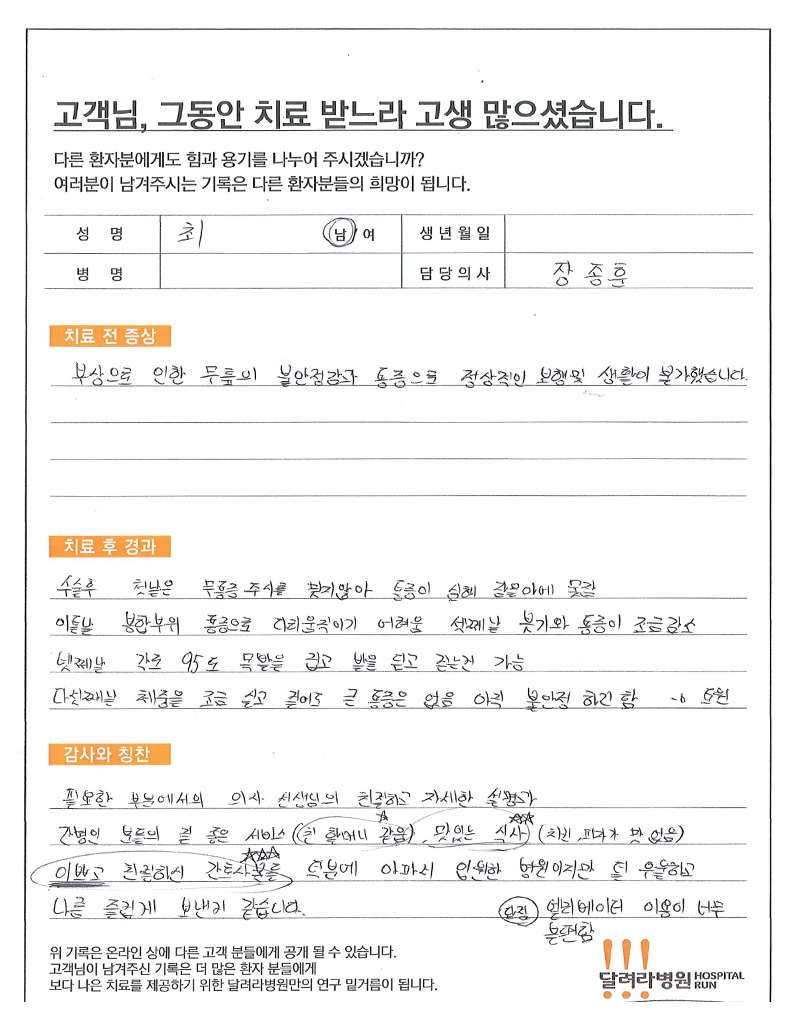 고객님, 그동안 치료 받느라 고생 많으셨습니다.
다른 환자분에게도 힘과 용기를 나누어 주시겠습니까?
여러분이 남겨주시는 기록은 다른 환자분들의 희망이 됩니다.
성 명 최 남/여 생년월일
병 명 담당의사 장종훈
치료 전 증상
부상으로 인한 무릎의 불안정감과 통증으로 정상적인 보행및 생활이 불가했습니다.
치료 후 경과
수술후 첫날은 무통증 주사를 맞지않아 통증이 심해 잠을 못잠
이튿날 봉합부위 통증으로 다리움직이기 어려움 셋째날 붓기와 통증이 조금감소
넷째날 각도 95도 목발을 짚고 발을 딛고 걷는건 가능
다섯째날 체중을 조금 싣고 걸어도 큰 통증은 없음 아직 불안정 하긴 함 → 퇴원
감사와 칭찬
필요한 부분에서의 의사 선생님의 친절하고 자세한 설명과
간병인 분들의 질 좋은 서비스 (친 할머니 같음), 맛있는 식사 (치킨, 피자가 맛 없음)
이쁘고 친절하신 간호사분들 덕분에 아파서 입원한 병원이지만 덜 우울하고
나름 즐겁게 보낸거 같습니다. 단점 엘리베이터 이용이 너무
불편함
위 기록은 온라인 상에 다른 고객 분들에게 공개 될 수 있습니다.
고객님이 남겨주신 기록은 더 많은 환자 분들에게
보다 나은 치료를 제공하기 위한 달려라병원만의 연구 밑거름이 됩니다.
달려라병원 HOSPITAL RUN